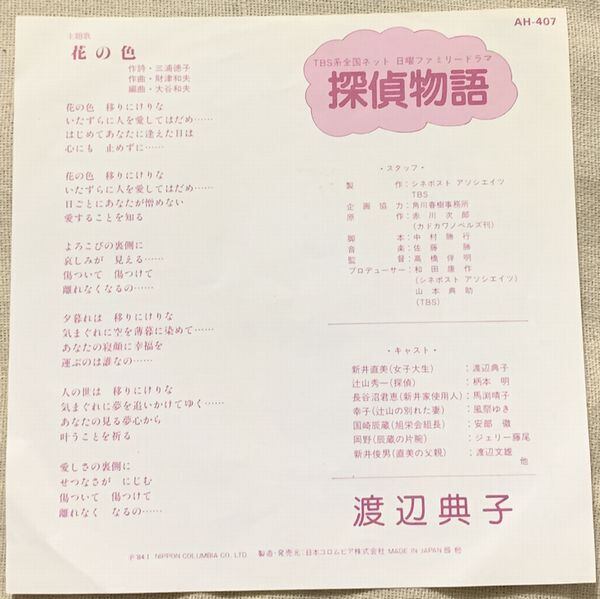 AH-407
主題歌
花の色
作詩・三浦徳子
作曲・財津和夫
編曲・大谷和夫
花の色　移りにけりな
いたずらに人を愛してはだめ……
はじめてあなたに逢えた日は
心にも　止めずに……
花の色　移りにけりな
いたずらに人を愛してはだめ……
日ごとにあなたが憎めない
愛することを知る
よろこびの裏側に
哀しみが　見える……
傷ついて　傷つけて
離れなくなるの……
夕暮れは　移りにけりな
気まぐれに空を薄暮に染めて……
あなたの寝顔に幸福を
運ぶのは誰なの……
人の世は　移りにけりな
気まぐれに夢を追いかけてゆく……
あなたの見る夢心から
叶うことを祈る
愛しさの裏側に
せつなさが　にじむ
傷ついて　傷つけて
離れなく　なるの……
TBS系全国ネット　日曜ファミリードラマ
探偵物語
・スタッフ・
製作：シネポスト アソシエイツ
TBS
企画協力：角川春樹事務所
原作：赤川次郎
（カドカワノベルズ刊）
脚本：中村勝行
音楽：佐藤勝
監督：高橋伴明
プロデューサー：和田康作
（シネポスト アソシエイツ）
山本典助
（TBS）
・キャスト・
新井直美（女子大生）：渡辺典子
辻山秀一（探偵）：柄本　明
長谷沼君恵（新井家使用人）：馬渕晴子
幸子（辻山の別れた妻）：風祭ゆき
国崎辰蔵（旭栄会組長）：安部　徹
岡野（辰蔵の片腕）：ジェリー藤尾
新井俊男（直美の父親）：渡辺文雄
他
渡辺典子
℗'84.1 NIPPON COLUMBIA CO., LTD.　製造・発売元：日本コロムビア株式会社 MADE IN JAPAN